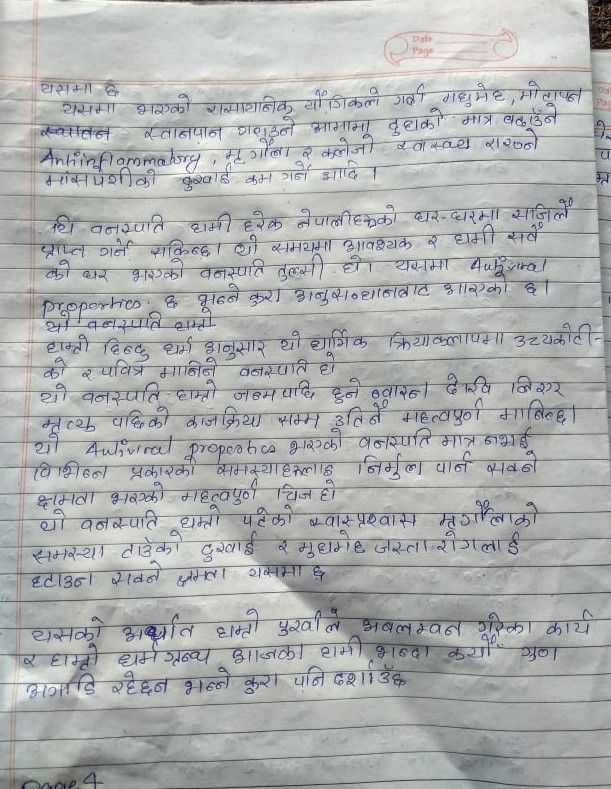 Date
Page
यसमा छ
यसमा भएको रासायनिक यौगिकले गर्दा मधुमेह, मोटापन
स्तनपान गराउने आमामा दुधको मात्र बढाउने
Antiinflammatory, मृगौला र कलेजो स्वास्थ्य राख्ने
मांसपेशीको दुखाई कम गर्ने आदि ।
यि वनस्पति हामी हरेक नेपालीहरुको घर-घरमा सजिलै
प्राप्त गर्न सकिन्छ। यो समयमा आवश्यक र हामी सबै
को घर भएको वनस्पति तुलसी हो। यसमा Antiviral
properties छ भन्ने कुरा अनुसन्धानबाट आएको छ।
यो वनस्पति हाम्रो
हाम्रो हिन्दु धर्म अनुसार यो धार्मिक क्रियाकलापमा उच्यकोटी-
को र पवित्र मानिने वनस्पति हो
यो वनस्पति हाम्रो जन्म पछि हुने न्वारन देखि लिएर
मृत्यु पछिको काजक्रिया सम्म उतिनै महत्वपुर्ण मानिन्छ।
यो Antiviral properties भएको वनस्पति मात्र नभई
विभिन्न प्रकारको समस्याहरुलाइ निर्मुल पार्न सक्ने
क्षमता भएको महत्वपुर्ण चिज हो
यो वनस्पति हाम्रो पेटको स्वास्प्रश्वास मृगौलाको
समस्या टाउको दुखाई र मुधमेह जस्ता रोगलाई
हटाउन सक्ने क्षमता यसमा छ
यसको अर्थात हाम्रो पुर्खाले अबलम्वन गरेका कार्य
र हाम्रो धर्मग्रन्थ आजका हामी भन्दा कयौं गुणा
अगाडि रहेछन भन्ने कुरा पनि दर्शाउँछ
Page 4